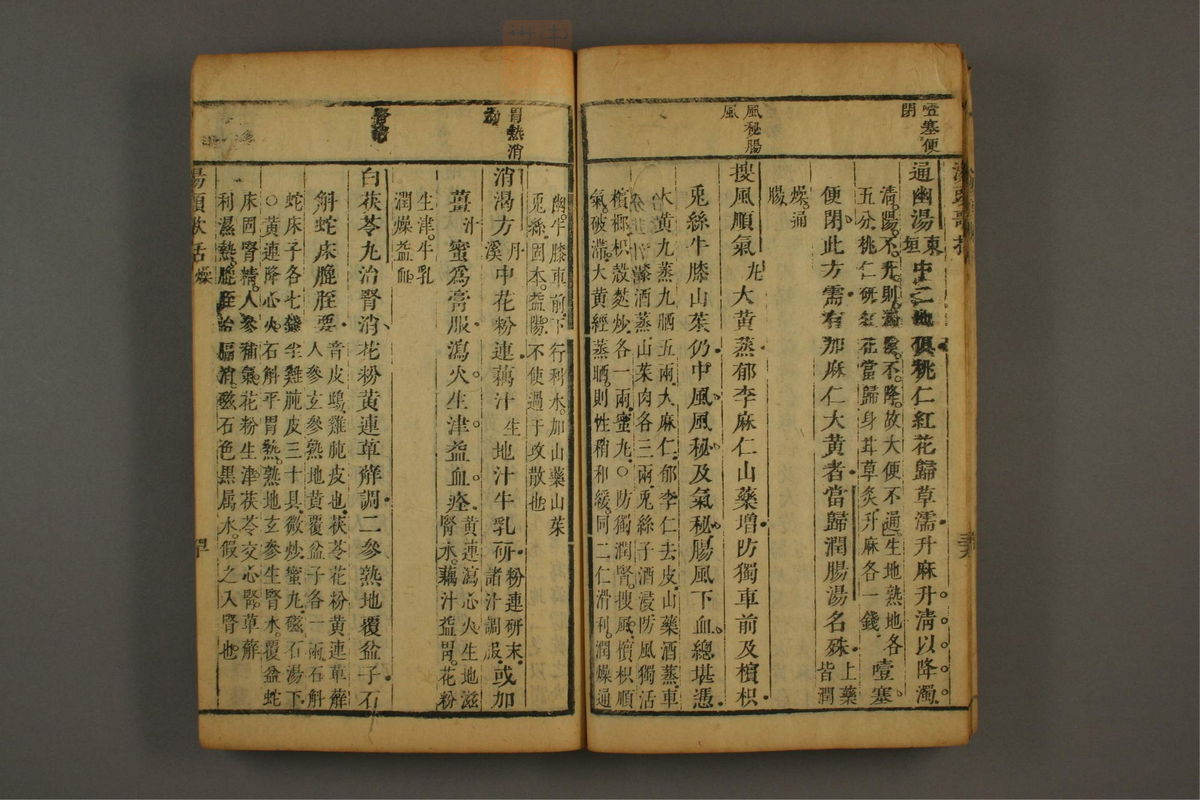 噎塞便
閉
通幽湯東垣中二地俱桃仁紅花歸草濡升麻升清以降濁
清陽不升則濁陰不降故大便不通生地熟地各
五分桃仁研紅花當歸身甘草炙升麻各一錢
噎塞
便閉此方需有加麻仁大黃者當歸潤腸湯名殊
上藥
皆潤
燥通
腸
風秘腸
風
搜風順氣丸大黃蒸郁李麻仁山藥增防獨車前及檳枳
兎絲牛膝山茱仍中風風秘及氣秘腸風下血總堪憑
大黃九蒸九晒五兩大麻仁郁李仁去皮山藥酒蒸車
膝酒蒸山茱肉各三兩兎絲子酒浸防風獨活
檳榔枳殼麩炒各一兩蜜丸○防獨潤腎搜風檳枳順
氣破滯大黃經蒸晒則性稍和緩同二仁滑利潤燥通
幽牛膝車前下行利水加山藥山茱
兎絲固本益陽不使過于攻散也
胃熱消
消渴方丹溪中花粉連藕汁生地汁牛乳研粉連研末諸汁調服或加
薑汁蜜爲膏服瀉火生津益血痊
黃連瀉心火生地滋
腎水藕汁益胃花粉
生津牛乳
潤燥益血
白茯苓丸治腎消花粉黃連萆薢調二參熟地覆盆子石
斛蛇床膍胵要
音皮鴟雞肫皮也茯苓花粉黃連萆薢
人參玄參熟地黃覆盆子各一兩石斛
蛇床子各七錢半雞肫皮三十具微炒蜜丸磁石湯下
○黃連降心火石斛平胃熱熟地玄參生腎水覆盆蛇
床固腎精人參補氣花粉生津茯苓交心腎萆薢
利濕熱膍胵治膈消磁石色黑属水假之入腎也
湯頭歌括
燥